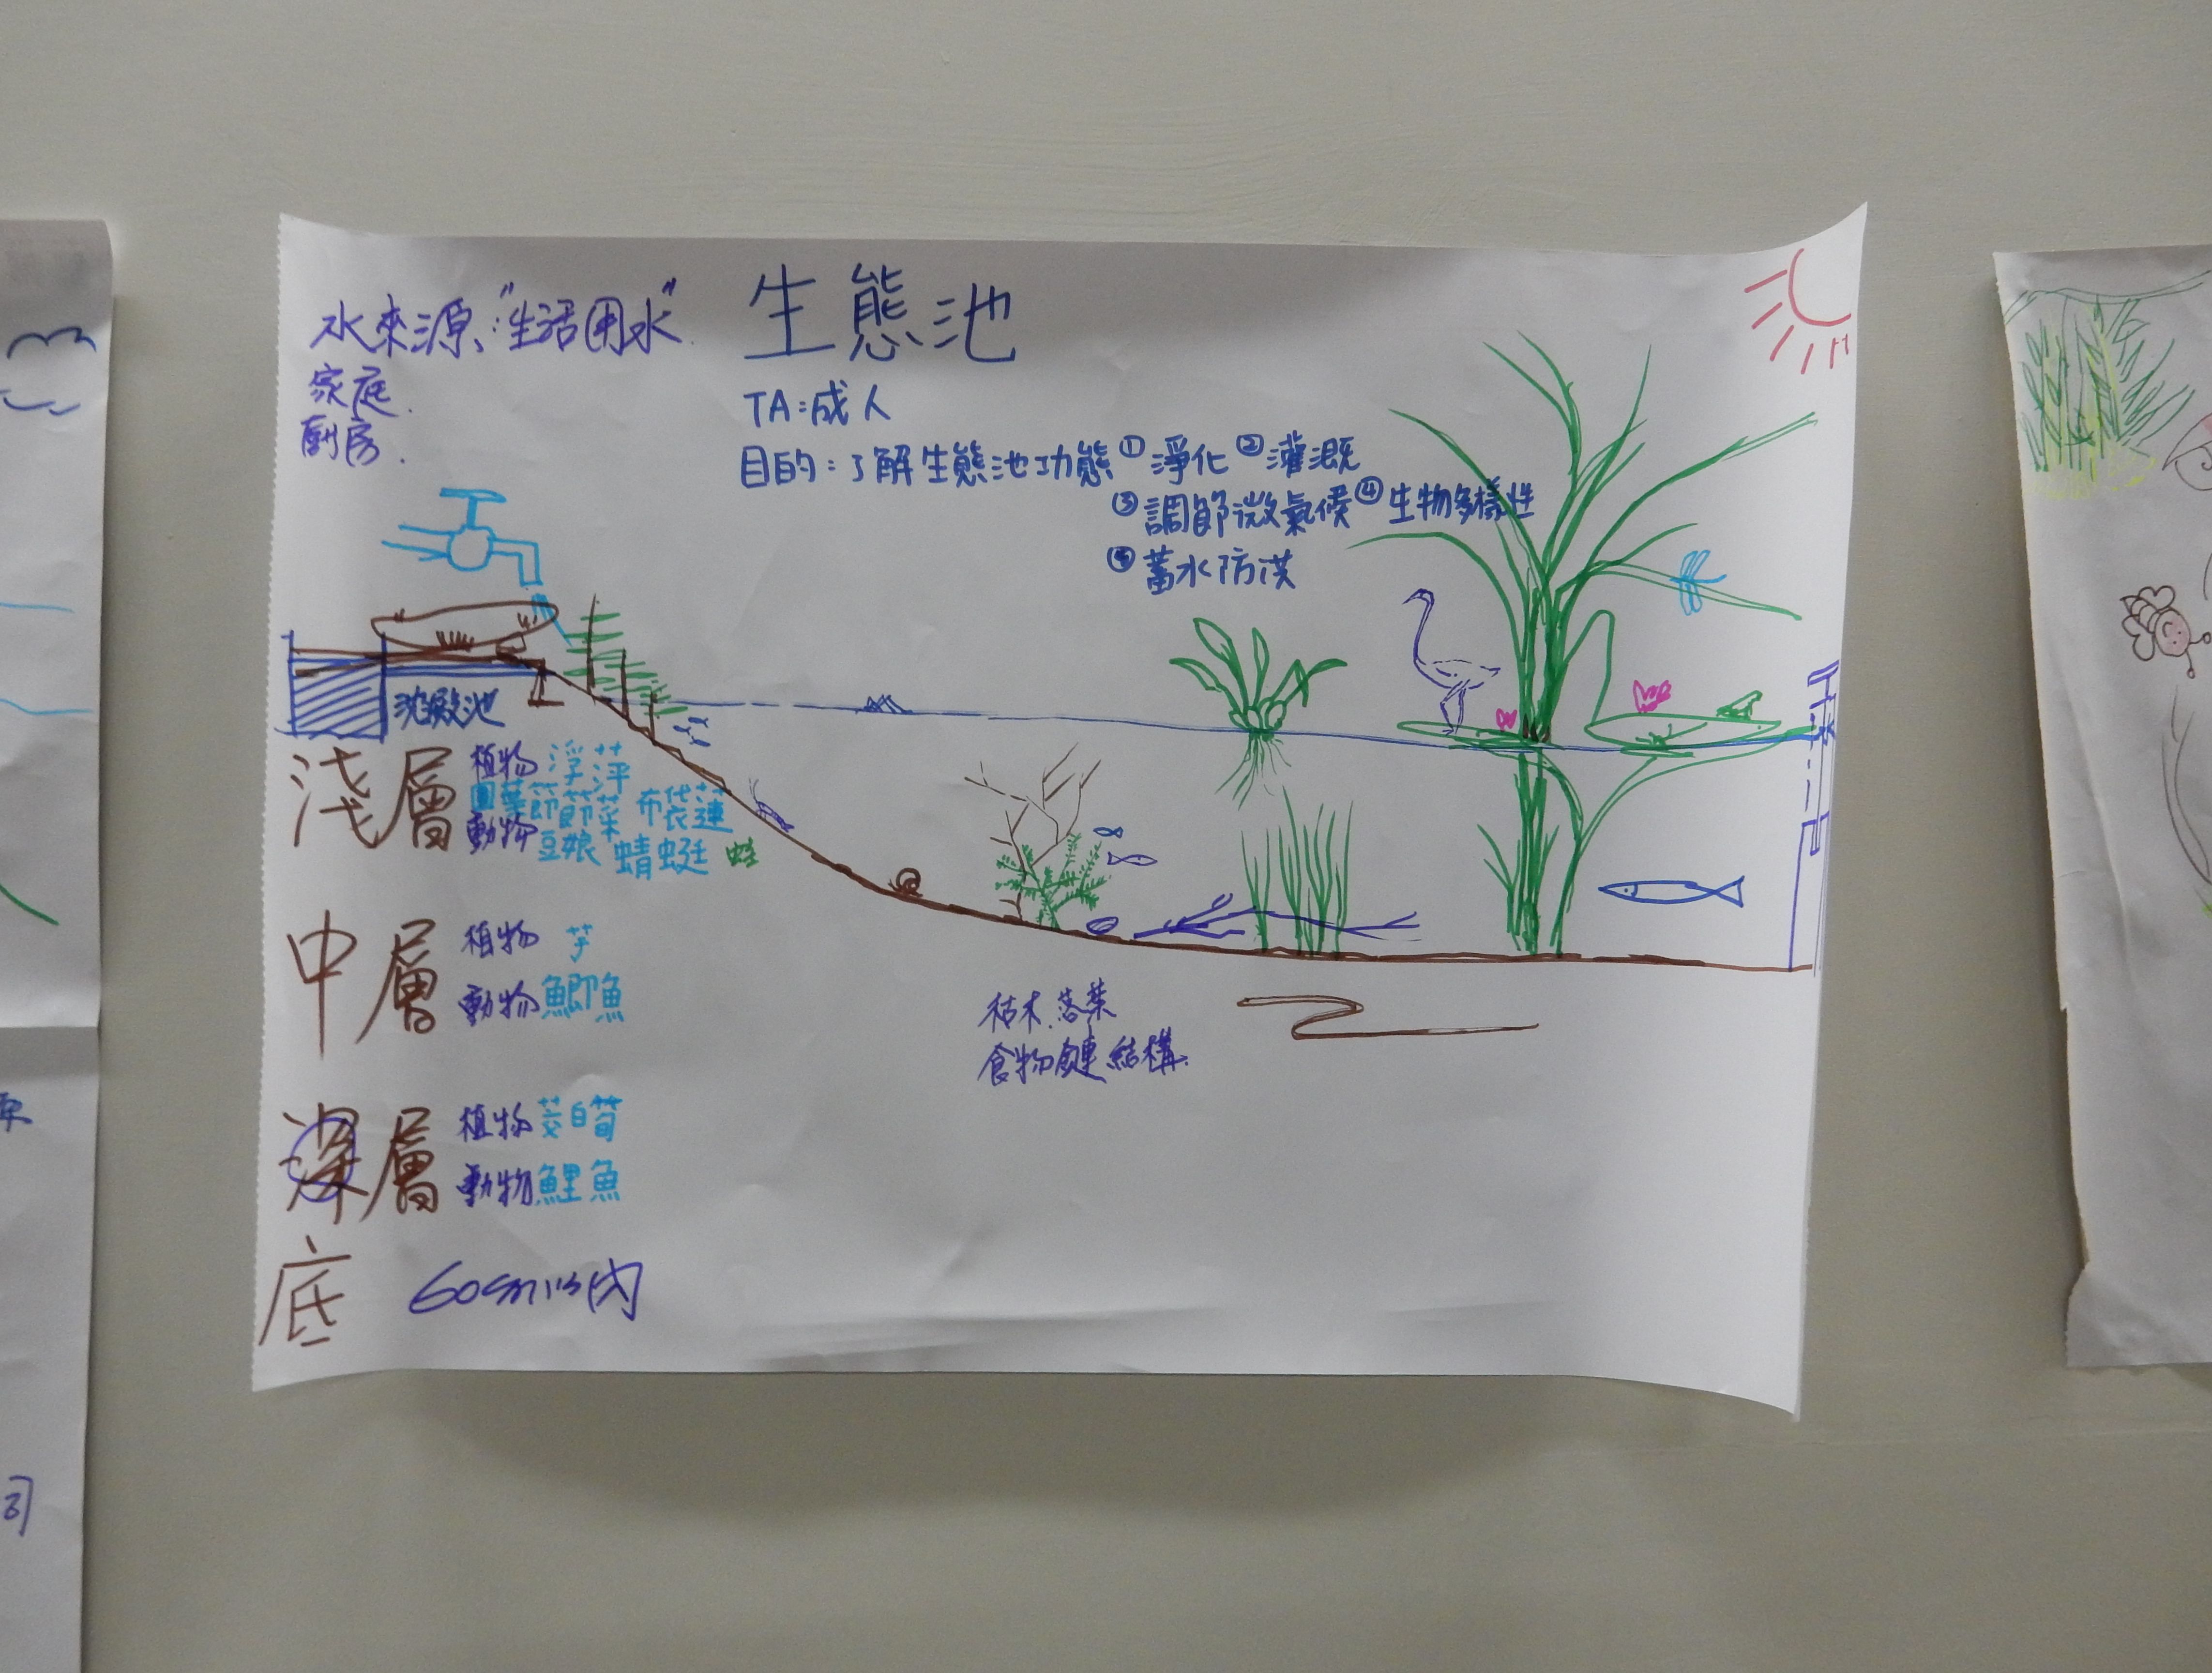 水來源:"生活用水"
家庭.
廚房.
生態池
TA:成人
目的:了解生態池功態①淨化②灌溉
③調節微氣候④生物多樣性
⑤蓄水防洪
沈澱池
淺層
植物 浮萍
圓葉節節菜 布袋蓮
動物 豆娘 蜻蜓 蛙
中層
植物 芋
動物 鯽魚
深層
植物 茭白筍
動物 鯉魚
底 60cm以內
枯木.落葉
食物鏈結構.
司